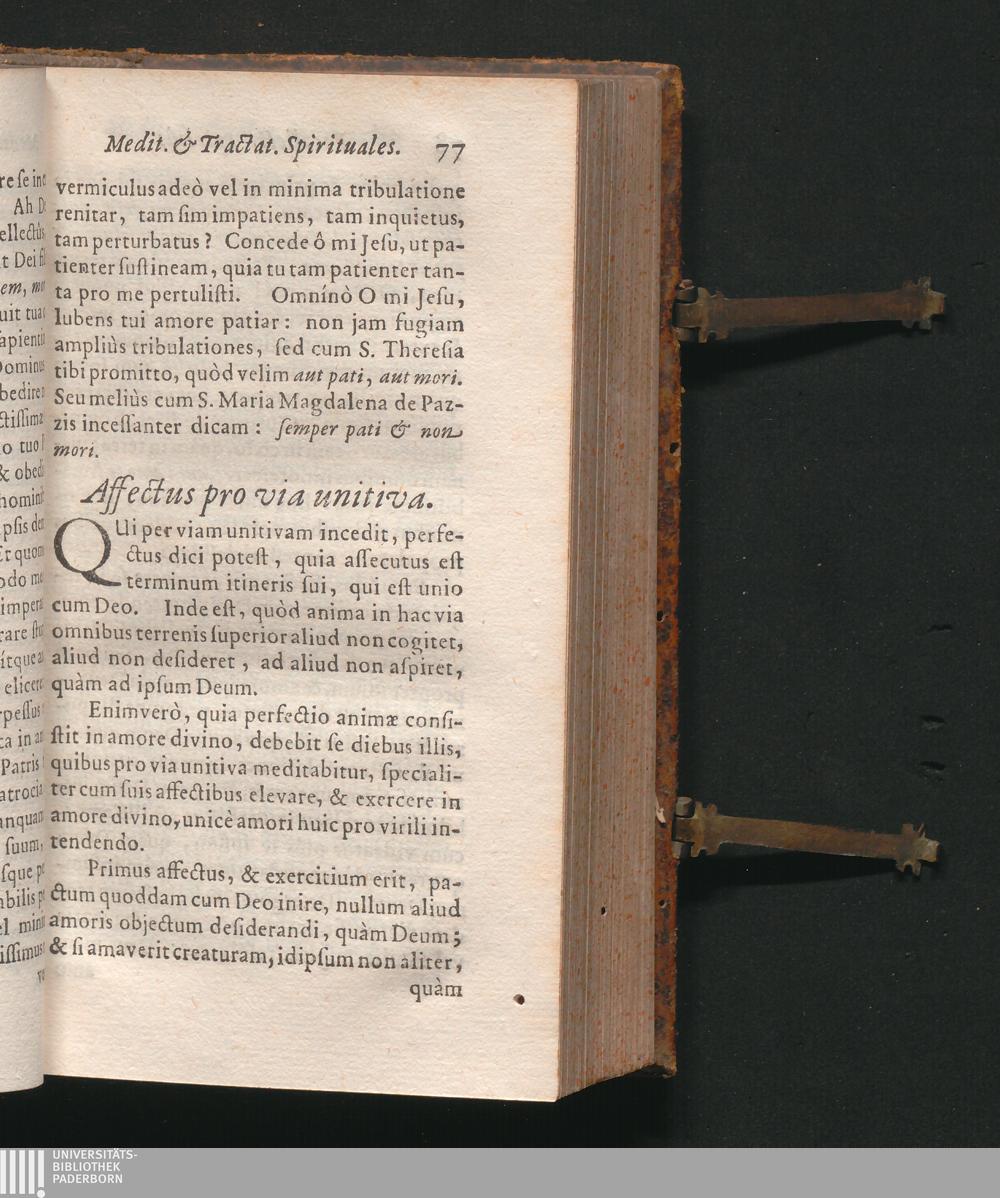 Medit. & Tractat. Spirituales. 77
vermiculus adeò vel in minima tribulatione
renitar, tam ſim impatiens, tam inquietus,
tam perturbatus? Concede ô mi Jeſu, ut pa-
tienter ſuſtineam, quia tu tam patienter tan-
ta pro me pertuliſti. Omnínò O mi Jeſu,
lubens tui amore patiar: non jam fugiam
ampliùs tribulationes, ſed cum S. Thereſia
tibi promitto, quòd velim aut pati, aut mori.
Seu meliùs cum S. Maria Magdalena de Paz-
zis inceſſanter dicam: ſemper pati & non
mori.
Affectus pro via unitiva.
QUi per viam unitivam incedit, perfe-
ctus dici poteſt, quia aſſecutus eſt
terminum itineris ſui, qui eſt unio
cum Deo. Inde eſt, quòd anima in hac via
omnibus terrenis ſuperior aliud non cogitet,
aliud non deſideret, ad aliud non aſpiret,
quàm ad ipſum Deum.
Enimverò, quia perfectio animæ conſi-
ſtit in amore divino, debebit ſe diebus illis,
quibus pro via unitiva meditabitur, ſpeciali-
ter cum ſuis affectibus elevare, & exercere in
amore divino, unicè amori huic pro virili in-
tendendo.
Primus affectus, & exercitium erit, pa-
ctum quoddam cum Deo inire, nullum aliud
amoris objectum deſiderandi, quàm Deum;
& ſi amaverit creaturam, idipſum non aliter,
quàm
UNIVERSITÄTS-
BIBLIOTHEK
PADERBORN